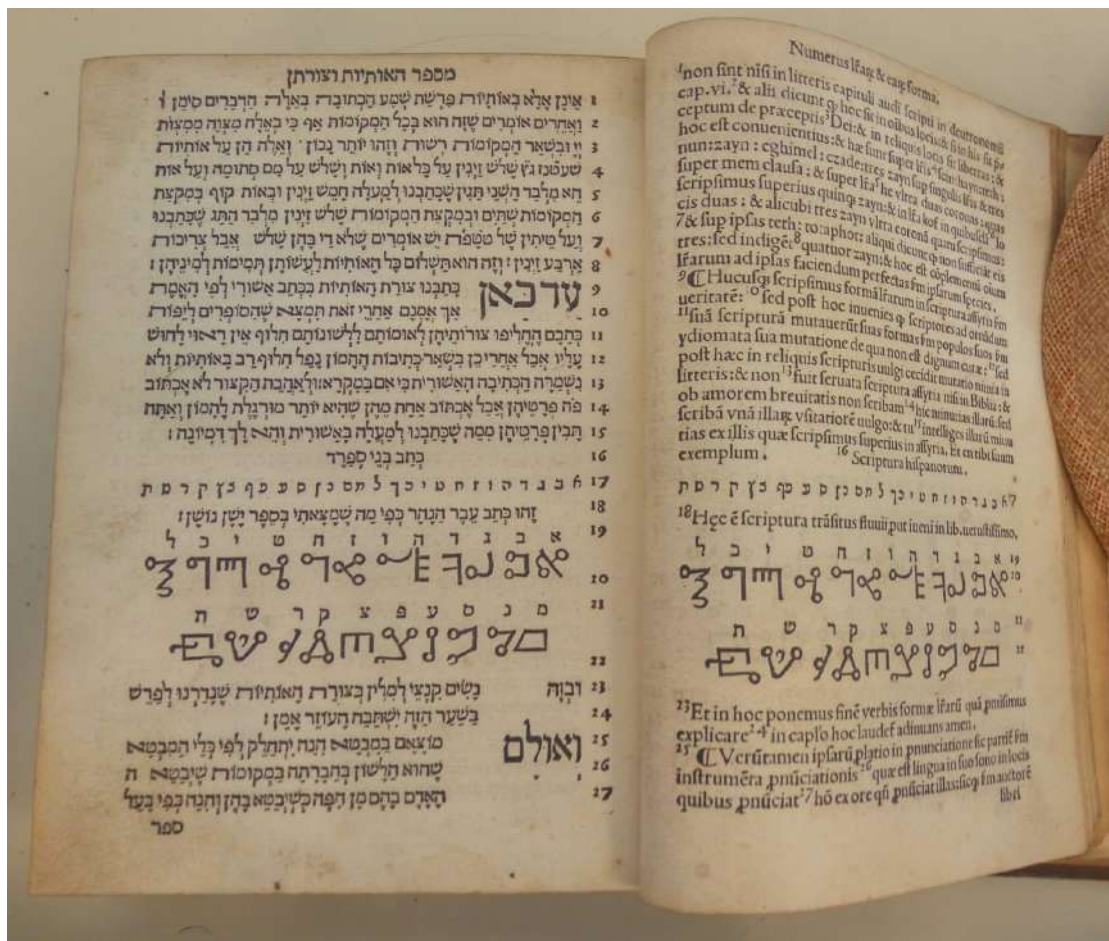 מספר האותיות וצורתן
1 אינן אלא באותיות פרשת שמע הכתובה באלה הדברים סימן ו
2 ואחרים אומרים שזה הוא בכל המקומות אף כי באלה מצוה ממצות
3 ובשאר המקומות רשות וזהו יותר נכון ואלה הן על אותיות
4 שעטנז גץ שלש זינין על כל אות ואות ושלש על מם סתומה ועל אות
5 חא מלבד השני תגין שכתבנו למעלה חמש זינין ובאות קוף במקצת
6 המקומות שתים ובמקצת המקומות שלש זינין מלבד התג שכתבנו
7 ועל טיתין של טטפת יש אומרים שלא די בהן שלש אבל צריכות
8 ארבע זינין : וזה הוא תשלום כל האותיות לעשותן תמימות למיניהן :
9 עד כאן כתבנו צורת האותיות בכתב אשורי לפי האמת
10 אך אמנם אחרי זאת תמצא שהסופרים ליפות
11 כתבם החליפו צורותיהן לאומותם ללשונותם חלוף אין ראוי לחוש
12 עליו אבל אחרי כן בשאר כתיבות ההמון נפל חלוף רב באותיות ולא
13 נשמרה הכתיבה האשורית כי אם במקרא : ולאהבת הקצור לא אכתוב
14 פה פרטיהן אבל אכתוב אחת מהן שהיא יותר מורגלת להמון ואתה
15 תבין פרטיהן ממה שכתבנו למעלה באשורית והא לך דמיונה :
16 כתב בני ספרד
17 א ב ג ד ה ו ז ח ט י כ ך ל מ ם נ ן ס ע פ ף צ ץ ק ר ש ת
18 זהו כתב עבר הנהר כפי מה שמצאתי בספר ישן נושן :
19 א ב ג ד ה ו ז ח ט י כ ל
20
21 מ נ ס ע פ צ ק ר ש ת
22
23 ובזה נשים קנצי למלין בצורת האותיות שנדרנו לפרש
24 בשער הזה ישתבח העוזר אמן :
25 ואולם מוצאם במבטא הנה יתחלק לפי כלי המבטא
26 שהוא הלשון בחברתה במקומות שיבטא ה
27 האדם בהם מן הפה כשיבטא בהן והנה כפי בעל
ספר
Numerus lr̃aꝝ & eaꝝ forma,
1 non sint nisi in litteris capituli audi scripti in deutronomii
cap.vi. 2 & alii dicunt ꝙ hoc sit in oĩbus locis: & si in his sit p̃
ceptum de præceptis 3 Dei: & in reliquis locis sit libertas: &
hoc est conuenientius: & hæ sunt super lr̃is 4 scin: hayn: teth:
nun: zayn: eghimel: czade: tres zayn sup singulis lr̃is & tres
super mem clausa: & super lr̃a 5 he vltra duas coronas: quas
scripsimus superius quinq; zayn: & in lr̃a kof in quibusdã 6 lo
cis duas: & alicubi tres zayn vltra coronã quam scripsimus:
7 & sup ipsas teth: to: aphot: aliqui dicunt ꝙ non sufficiãt eis
tres: sed indigẽt 8 quatuor zayn: & hoc est cõplementũ oium
lr̃arum ad ipsas faciendum perfectas fm ipsarum species.
9 ¶ Hucusq; scripsimus formã lr̃arum in scriptura assyria fm
ueritatẽ: 10 sed post hoc inuenies ꝙ scriptores ad ornãdum
11 suã scripturã mutauerũt suas formas fm populos suos fm
ydiomata sua mutatione de qua non est dignum curæ: 12 sed
post hæc in reliquis scripturis uulgi cecidit mutatio nimia in
litteris: & non 13 fuit seruata scriptura assyria nisi in Biblia: &
ob amorem breuitatis non scribam 14 hic minutias illarũ: sed
scribã vnã illaꝝ vsitatiorẽ uulgo: & tu 15 intelliges illarũ minu
tias ex illis quæ scripsimus superius in assyria. Et en tibi suum
exemplum. 16 Scriptura hispanorum.
17 א ב ג ד ה ו ז ח ט י כ ך ל מ ם נ ן ס ע פ ף צ ץ ק ר ש ת
18 Hęc ẽ scriptura trãsitus fluuii, put iueni in lib. uetustissimo,
19 א ב ג ד ה ו ז ח ט י כ ל
20
21 מ נ ס ע פ צ ק ר ש ת
22
23 Et in hoc ponemus finẽ verbis formæ lr̃arũ quã pmisimus
explicare 24 in caplo hoc laudet adiuuans amen.
25 ¶ Verũtamen ipsarũ platio in pnunciatione sic partit fm
instrumẽta pnũciationis 26 quæ est lingua in suo sono in locis
quibus pnũciat 27 hõ ex ore qñ pnũciat illas: sicq; fm auctorẽ
libri